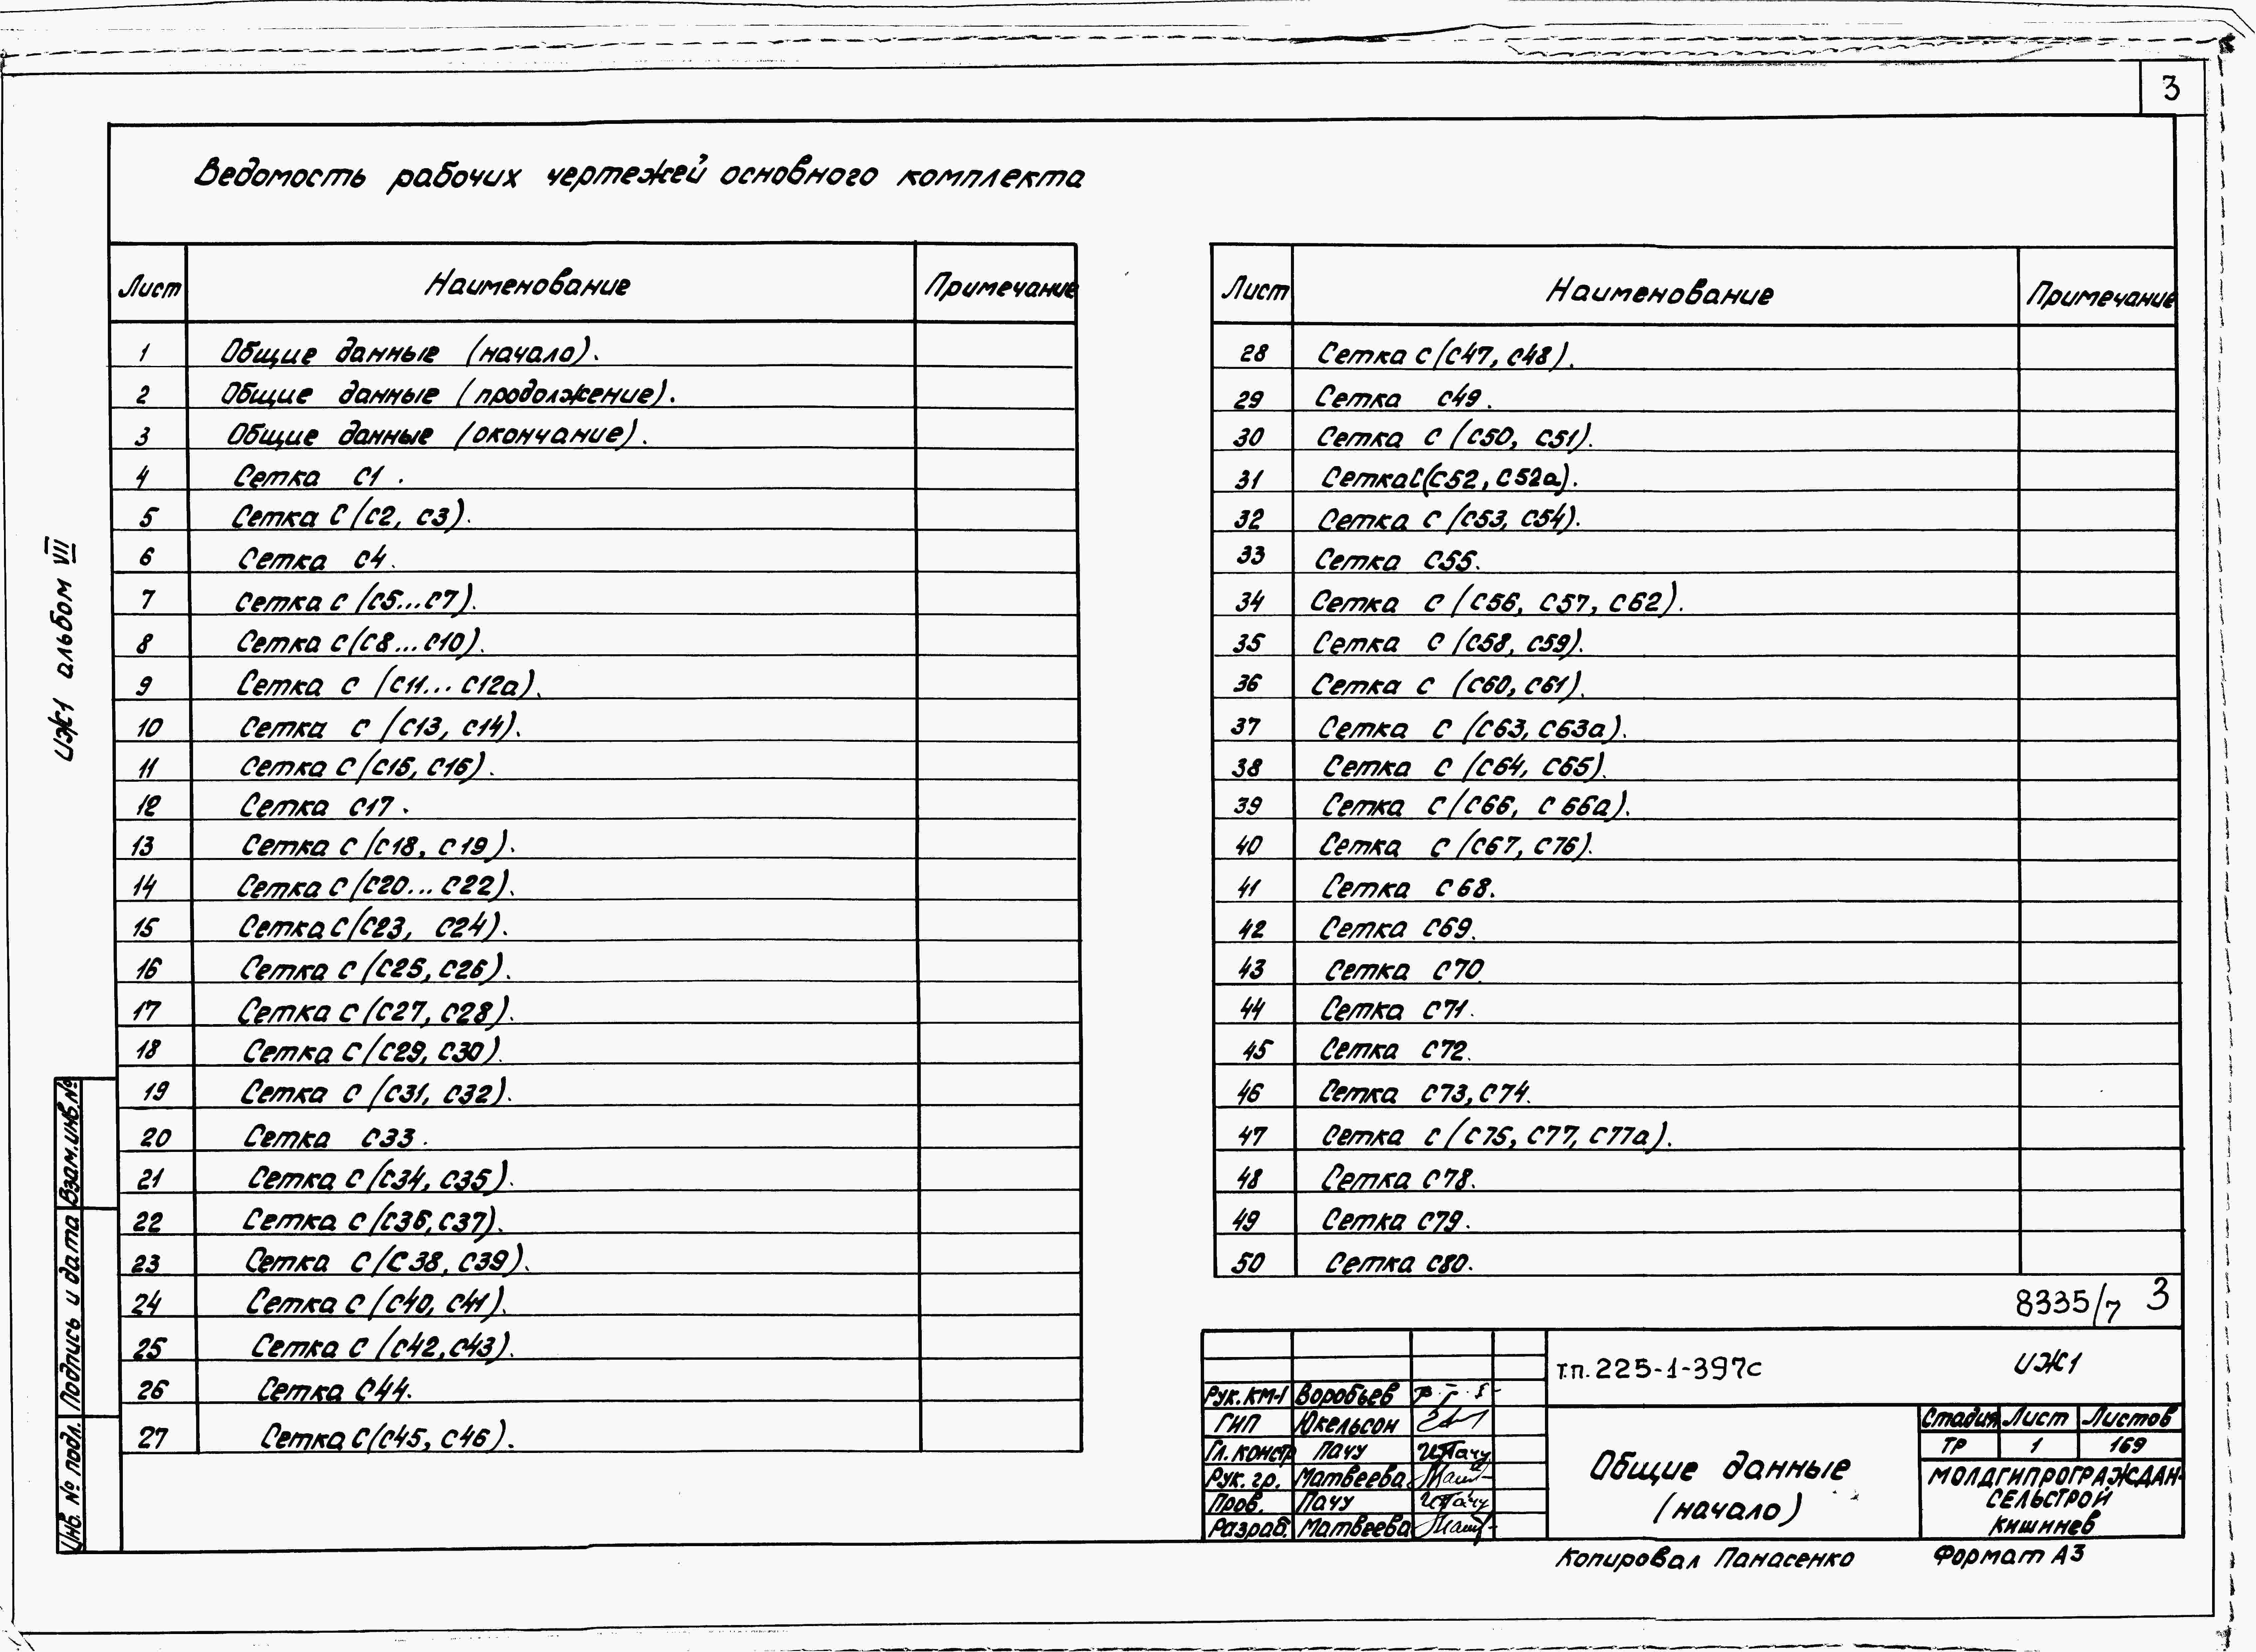 3
Ведомость рабочих чертежей основного комплекта
Лист Наименование Примечание
1 Общие данные (начало).
2 Общие данные (продолжение).
3 Общие данные (окончание).
4 Сетка С1.
5 Сетка С (С2, С3).
6 Сетка С4.
7 Сетка С (С5...С7).
8 Сетка С (С8...С10).
9 Сетка С (С11...С12а).
10 Сетка С (С13, С14).
11 Сетка С (С15, С16).
12 Сетка С17.
13 Сетка С (С18, С19).
14 Сетка С (С20...С22).
15 Сетка С (С23, С24).
16 Сетка С (С25, С26).
17 Сетка С (С27, С28).
18 Сетка С (С29, С30).
19 Сетка С (С31, С32).
20 Сетка С33.
21 Сетка С (С34, С35).
22 Сетка С (С36, С37).
23 Сетка С (С38, С39).
24 Сетка С (С40, С41).
25 Сетка С (С42, С43).
26 Сетка С44.
27 Сетка С (С45, С46).
Лист Наименование Примечание
28 Сетка С (С47, С48).
29 Сетка С49.
30 Сетка С (С50, С51).
31 Сетка С (С52, С52а).
32 Сетка С (С53, С54).
33 Сетка С55.
34 Сетка С (С56, С57, С62).
35 Сетка С (С58, С59).
36 Сетка С (С60, С61).
37 Сетка С (С63, С63а).
38 Сетка С (С64, С65).
39 Сетка С (С66, С66а).
40 Сетка С (С67, С76).
41 Сетка С68.
42 Сетка С69.
43 Сетка С70.
44 Сетка С71.
45 Сетка С72.
46 Сетка С73, С74.
47 Сетка С (С75, С77, С77а).
48 Сетка С78.
49 Сетка С79.
50 Сетка С80.
8335/7 3
Т.п. 225-1-397с ИЖ1
Рук. КМ-1 Воробьев
ГИП Юкельсон
Гл. констр Пачу ИПачу
Рук. гр. Матвеева
Пров. Пачу ИПачу
Разраб. Матвеева
Общие данные
(начало)
Стадия Лист Листов
ТР 1 169
МОЛДГИПРОГРАЖДАН-
СЕЛЬСТРОЙ
КИШИНЕВ
Копировал Панасенко Формат А3
ИЖ1 альбом VII
Взам. инв. №
Подпись и дата
Инв. № подл.